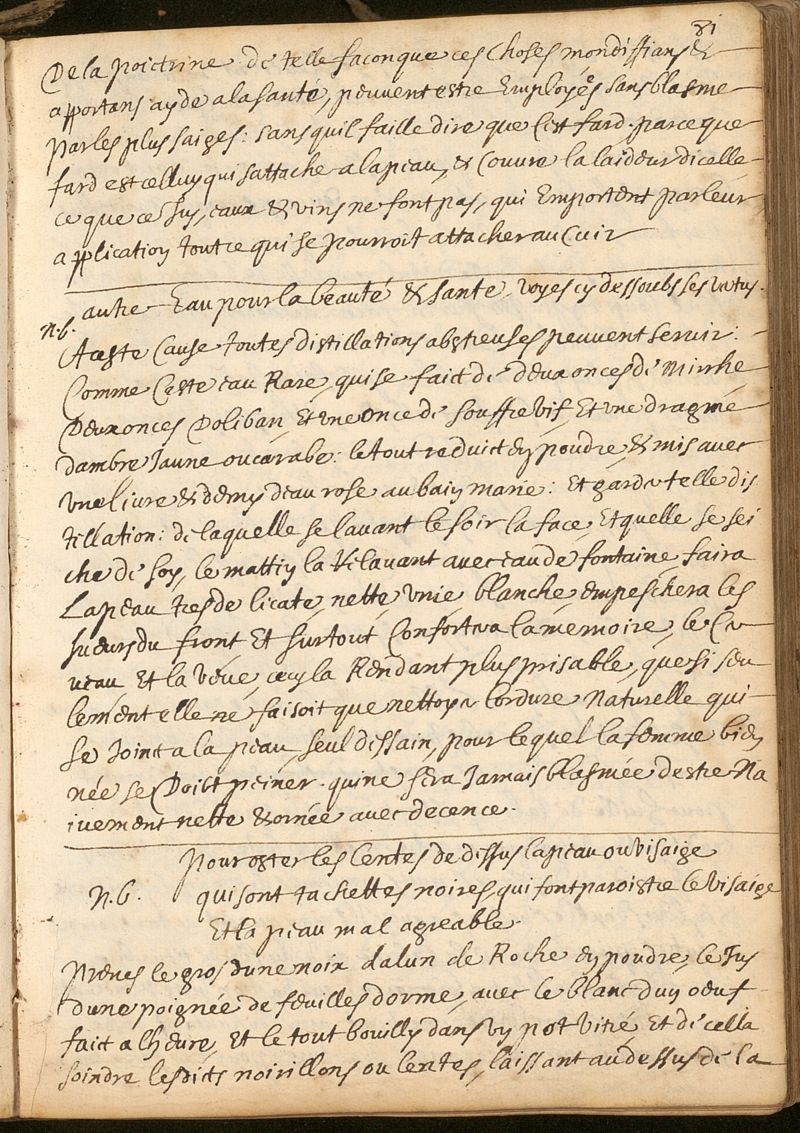 81
De la poictrine de telle facon que ces choses mondiffians et
apportans ayde a la santé, peuvent estre Employés sans blasme
par les plus saiges: sans quil faille dire que C'est fard. parce que
fard est celluy qui sattache a la peau, et Couvre la laideur dicelle
ce que ce Jus, eaux et vins ne font pas, qui Emportent par leur
application tout ce qui se pourroit attacher au Cuir
autre Eau pour la beauté et sante, voyes cy dessoubs ses vertus.
N.b.
A ceste Cause toutes distillations abstreuses peuvent servir:
Comme Ceste eau Rare, qui se faict de deux onces de Mirrhe
Deux onces Doliban, Et une once de souffre vif, Et une dragme
dambre Jaune ou carabe: le tout reduict en poudre, et mis avec
une livre et demy deau rose au bain marie: Et garder telle dis
tillation: de laquelle se lavant le soir la face, Et quelle se sei
che de soy, le mattin la Relavant avec eau de fontaine, faira
La peau tres delicate, nette unie blanche, empeschera les
sueurs du front Et surtout Confortera la memoire, le Cer
veau Et la veue, cecy la Rendant plus prisable, que si seu
lement elle ne faisoit que nettoyer lordure Naturelle qui
se Joint a la peau, seul dessain, pour lequel la femme bien
née se Doibt peiner. qui ne sera Jamais blasmée destre Na
ivement nette et ornée avec decence.
Pour oster les Lentes de dessus la peau ou visaige
N.b. qui sont tachettes noires, qui font paroistre le visaige
Et la peau mal agreable.
Prenes le gros dune noix dalun de Roche en poudre, le Jus
dune poignée de feuilles dorme, avec le blanc dun oeuf
faict a lheure, Et le tout bouilly dans un pot vitré, Et dicella
soindre lesdicts noirillons ou lentes, laissant au dessus de la